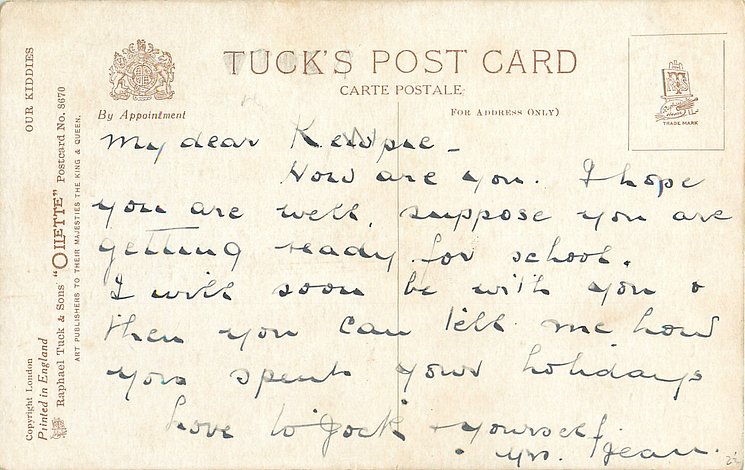 TUCK'S POST CARD
CARTE POSTALE
By Appointment
FOR ADDRESS ONLY)
TRADE MARK
OUR KIDDIES
Raphael Tuck & Sons' "OILETTE" Postcard No. 8670
ART PUBLISHERS TO THEIR MAJESTIES THE KING & QUEEN.
Copyright London
Printed in England
My dear Kewpie -
How are you. I hope
you are well, suppose you are
getting ready for school.
I will soon be with you &
then you can tell me how
you spent your holidays
Love to Jock + yourself
yrs. Jean.